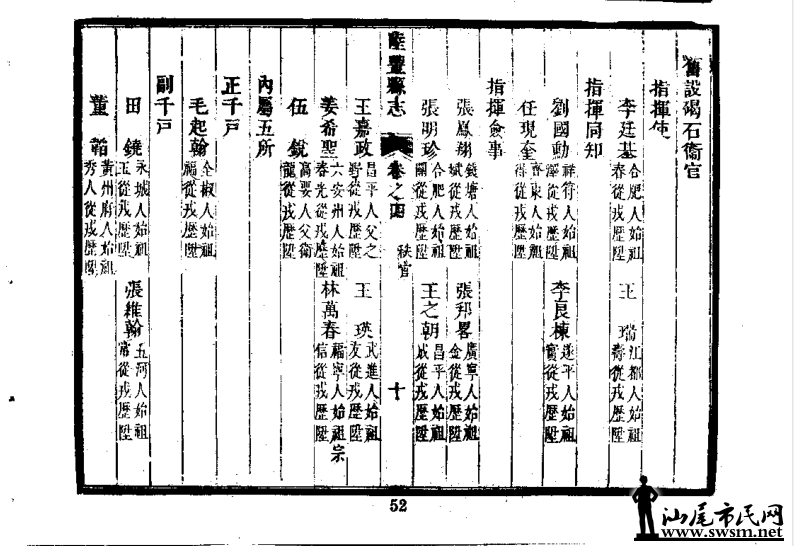 舊設碣石衞官
指揮使
李廷基 合肥人始祖春從戎歷陞 王 瑞 江都人始祖壽從戎歷陞
指揮同知
劉國勳 祥符人始祖澤從戎歷陞 李良棟 遂平人始祖實從戎歷陞
任現奎 人始祖得從戎歷陞
指揮僉事
張鳳翔 錢塘人始祖斌從戎歷陞 張邦畧 廣寧人始祖金從戎歷陞
張明珍 合肥人始祖關從戎歷陞 王之朝 昌平人始祖成從戎歷陞
陸豐縣志 卷之四 秩官 十
王嘉政 昌平人父之野從戎歷陞 王 瑛 武進人始祖友從戎歷陞
姜希聖 六安州人始祖春光從戎歷陞 林萬春 福寧人始祖宗信從戎歷陞
伍 銳 高要人父衞龍從戎歷陞
內屬五所
正千戸
毛起翰 全椒人始祖福從戎歷陞
副千戸
田 鏡 永城人始祖五從戎歷陞 張維翰 五河人始祖常從戎歷陞
董 韜 黃州府人始祖秀人從戎歷陞
52
汕尾市民网
www.swsm.net